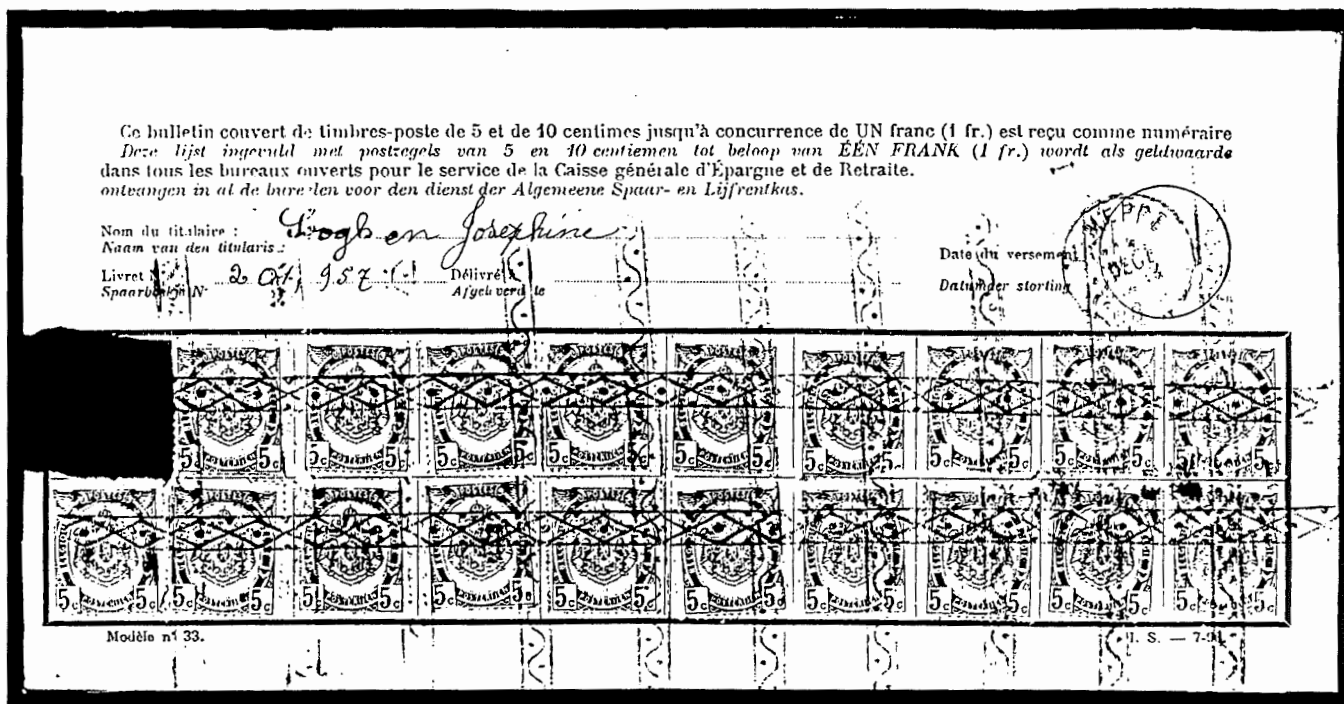 Ce bulletin couvert de timbres-poste de 5 et de 10 centimes jusqu'à concurrence de UN franc (1 fr.) est reçu comme numéraire
Deze lijst ingevuld met postzegels van 5 en 10 centiemen tot beloop van ÉÉN FRANK (1 fr.) wordt als geldwaarde
dans tous les bureaux ouverts pour le service de la Caisse générale d'Épargne et de Retraite.
ontvangen in al de bureelen voor den dienst der Algemeene Spaar- en Lijfrentkas.
Nom du titulaire : Josephine
Naam van den titularis :
Livret N 2 957 Délivré
Spaarboekje N Afgeleverd te
Date du versement
Datum der storting
JEPPE
DECE
POSTES POSTES POSTES POSTES POSTES POSTES POSTES POSTES POSTES
5c 5c 5c 5c 5c 5c 5c 5c 5c 5c 5c 5c 5c 5c 5c 5c 5c 5c
POSTES POSTES POSTES POSTES POSTES POSTES POSTES POSTES POSTES POSTES
5c 5c 5c 5c 5c 5c 5c 5c 5c 5c 5c 5c 5c 5c 5c 5c 5c 5c 5c 5c
Modèle n° 33.
S. — 7-9